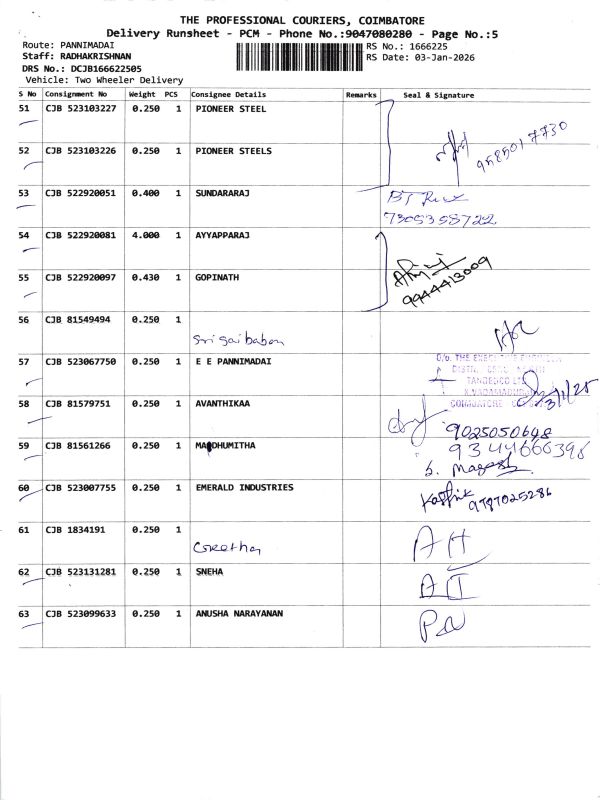 THE PROFESSIONAL COURIERS, COIMBATORE
Delivery Runsheet - PCM - Phone No.:9047080280 - Page No.:5
Route: PANNIMADAI
Staff: RADHAKRISHNAN
DRS No.: DCJB166622505
Vehicle: Two Wheeler Delivery
RS No.: 1666225
RS Date: 03-Jan-2026
S No Consignment No Weight PCS Consignee Details Remarks Seal & Signature
51 CJB 523103227 0.250 1 PIONEER STEEL
9585017730
52 CJB 523103226 0.250 1 PIONEER STEELS
53 CJB 522920051 0.400 1 SUNDARARAJ
7305358722
54 CJB 522920081 4.000 1 AYYAPPARAJ
55 CJB 522920097 0.430 1 GOPINATH
9944413009
56 CJB 81549494 0.250 1
Sri sai baban
57 CJB 523067750 0.250 1 E E PANNIMADAI
O/o. THE EXECUTIVE ENGINEER
TANGEDCO LTD
COIMBATORE
58 CJB 81579751 0.250 1 AVANTHIKAA
9025050648
59 CJB 81561266 0.250 1 MADHUMITHA
9344666398
S. Magesh
60 CJB 523007755 0.250 1 EMERALD INDUSTRIES
Karthik
9787025286
61 CJB 1834191 0.250 1
Geetha
AH
62 CJB 523131281 0.250 1 SNEHA
63 CJB 523099633 0.250 1 ANUSHA NARAYANAN